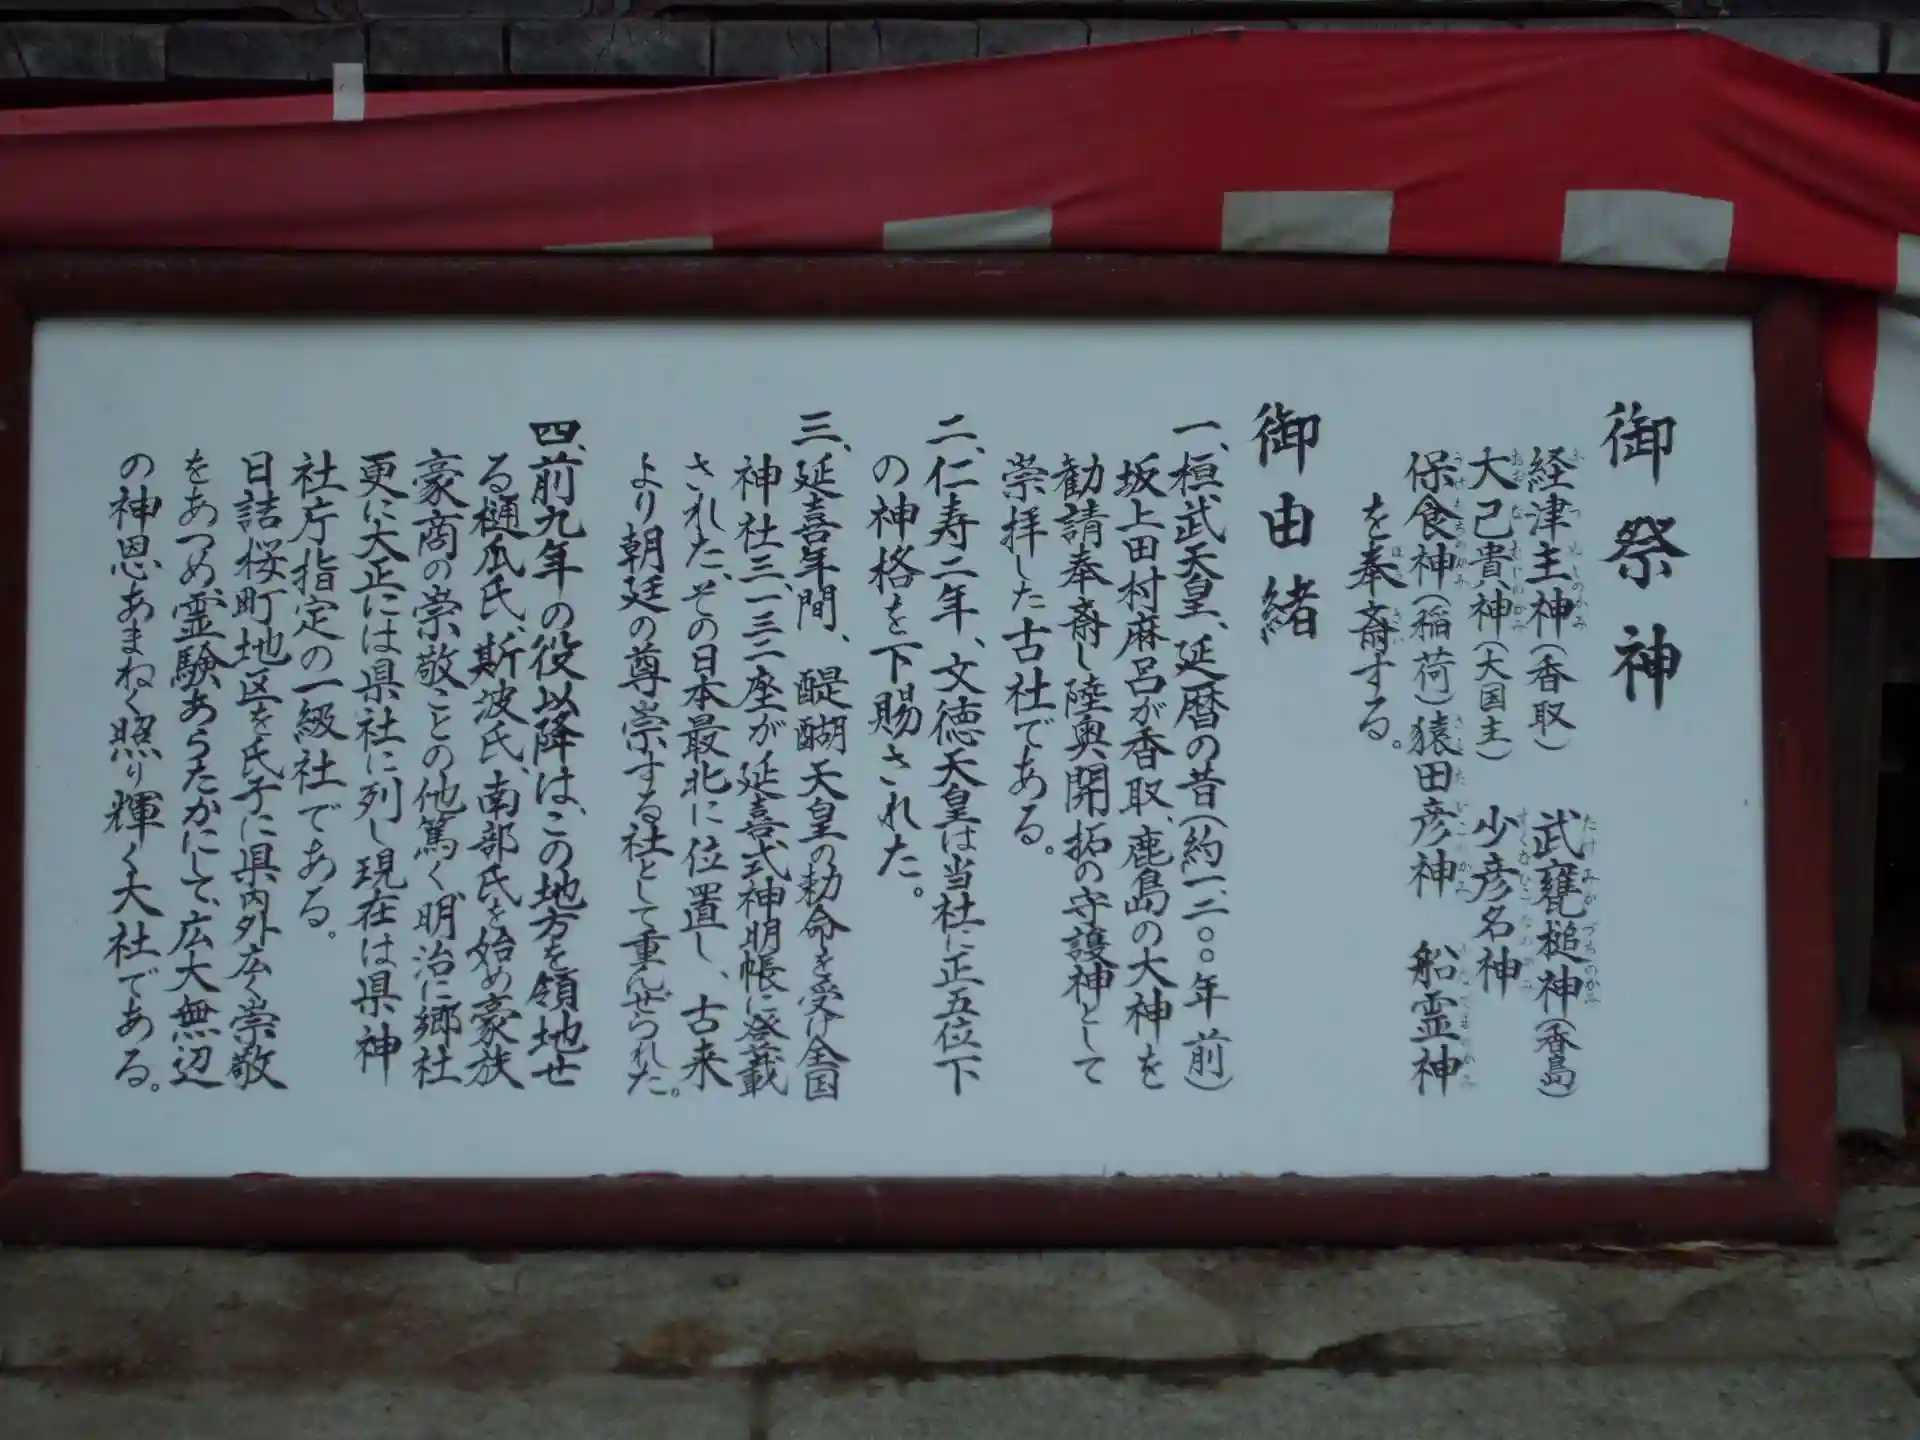 御祭神
経津主神（香取）　武甕槌神（香島）
大己貴神（大国主）　少彦名神
保食神（稲荷）猿田彦神　船霊神
を奉斎する。
御由緒
一、桓武天皇、延暦の昔（約一二〇〇年前）
坂上田村麻呂が香取、鹿島の大神を
勧請奉斎し陸奥開拓の守護神として
崇拝した古社である。
二、仁寿二年、文徳天皇は当社に正五位下
の神格を下賜された。
三、延喜年間、醍醐天皇の勅命を受け全国
神社三、一三二座が延喜式神明帳に登載
された、その日本最北に位置し、古来
より朝廷の尊崇する社として重んぜられた。
四、前九年の役以降は、この地方を領地せ
る樋爪氏、斯波氏、南部氏を始め豪族
豪商の崇敬ことの他篤く、明治に郷社
更に大正には県社に列し現在は県神
社庁指定の一級社である。
日詰桜町地区を氏子に県内外広く崇敬
をあつめ、霊験あらたかにして、広大無辺
の神恩あまねく照り輝く大社である。